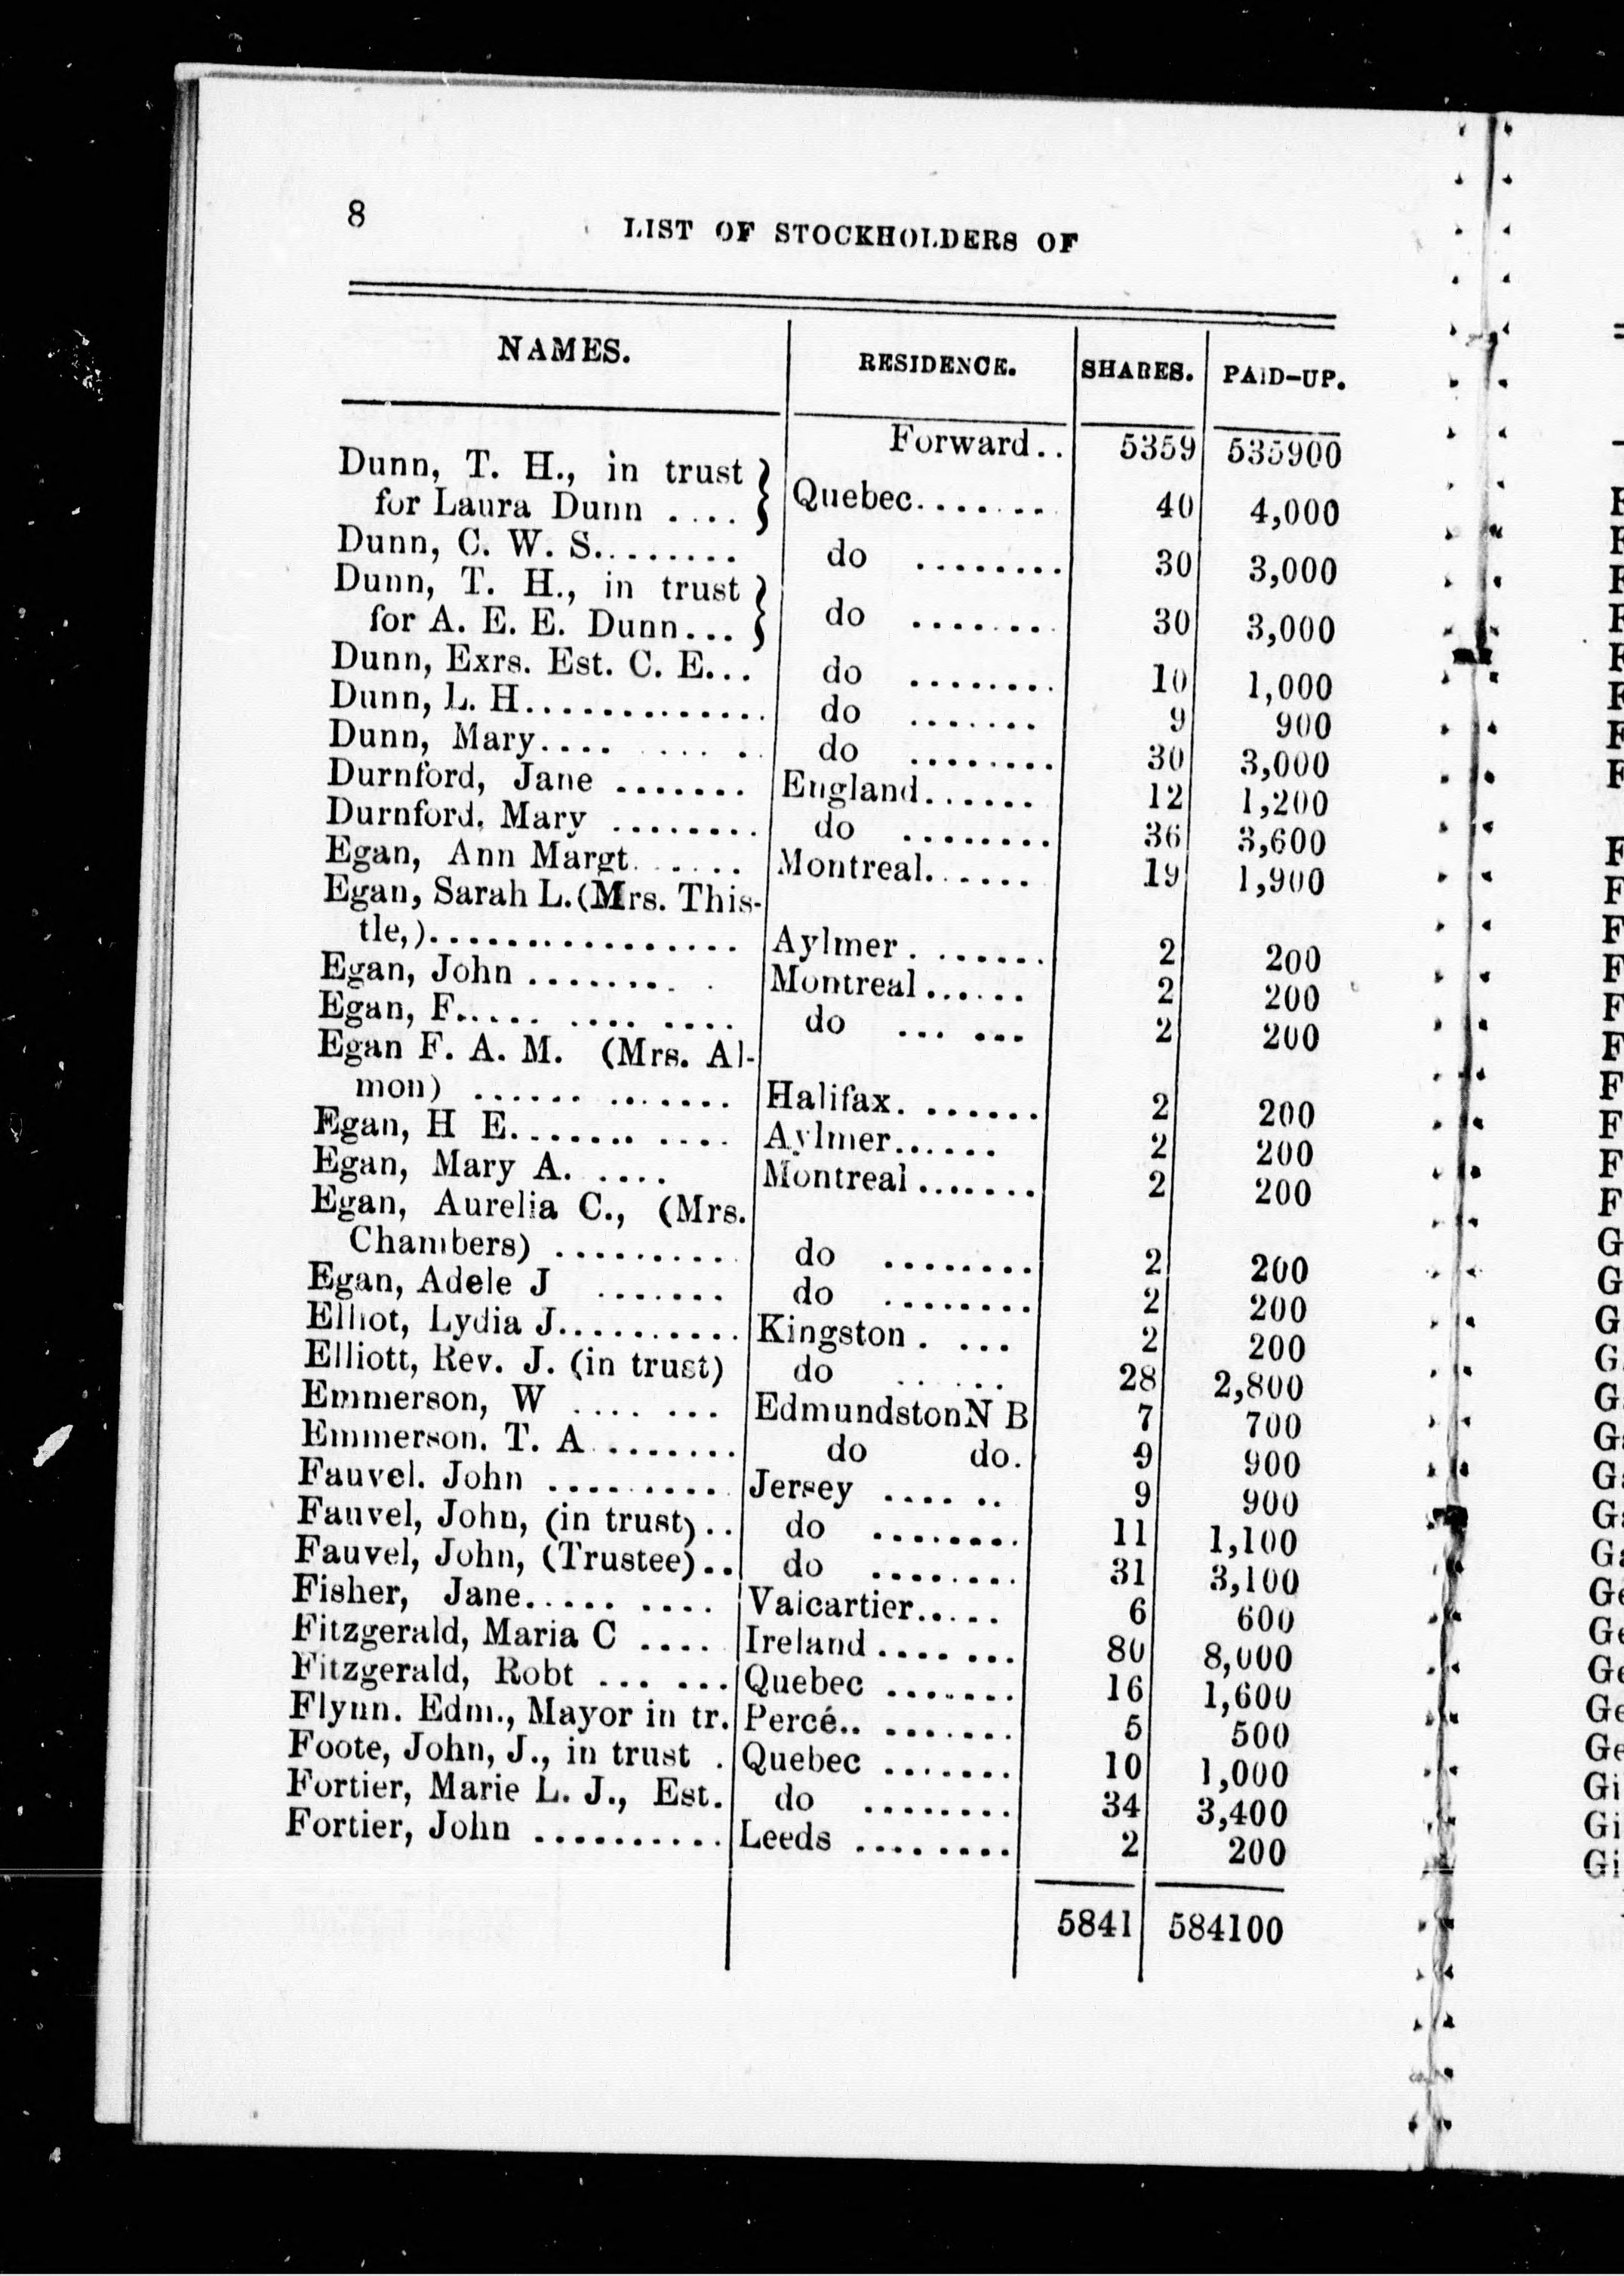 8
LIST OF STOCKHOLDERS OF
NAMES. RESIDENCE. SHARES. PAID-UP.
Forward.. 5359 535900
Dunn, T. H., in trust
for Laura Dunn .... } Quebec........ 40 4,000
Dunn, C. W. S......... do ........ 30 3,000
Dunn, T. H., in trust
for A. E. E. Dunn... } do ........ 30 3,000
Dunn, Exrs. Est. C. E... do ........ 10 1,000
Dunn, L. H.............. do ....... 9 900
Dunn, Mary.... .... . do ........ 30 3,000
Durnford, Jane ....... England...... 12 1,200
Durnford. Mary ........ do ........ 36 3,600
Egan, Ann Margt...... Montreal...... 19 1,900
Egan, Sarah L. (Mrs. This-
tle,)................ Aylmer. ...... 2 200
Egan, John ........ . Montreal...... 2 200
Egan, F..... .... .... do ... ... 2 200
Egan F. A. M. (Mrs. Al-
mon) ...... ....... Halifax. ...... 2 200
Egan, H E....... .... Aylmer...... 2 200
Egan, Mary A. .... Montreal....... 2 200
Egan, Aurelia C., (Mrs.
Chambers) .......... do ........ 2 200
Egan, Adele J ....... do ........ 2 200
Elliot, Lydia J.......... Kingston . ... 2 200
Elliott, Rev. J. (in trust) do ..... 28 2,800
Emmerson, W .... ... EdmundstonN B 7 700
Emmerson. T. A ....... do do. 9 900
Fauvel. John ......... Jersey .... .. 9 900
Fauvel, John, (in trust).. do ........ 11 1,100
Fauvel, John, (Trustee).. do ........ 31 3,100
Fisher, Jane..... .... Valcartier..... 6 600
Fitzgerald, Maria C .... Ireland .... ... 80 8,000
Fitzgerald, Robt ... ... Quebec ....... 16 1,600
Flynn. Edm., Mayor in tr. Percé.. ....... 5 500
Foote, John, J., in trust . Quebec ....... 10 1,000
Fortier, Marie L. J., Est. do ........ 34 3,400
Fortier, John .......... Leeds ........ 2 200
5841 584100